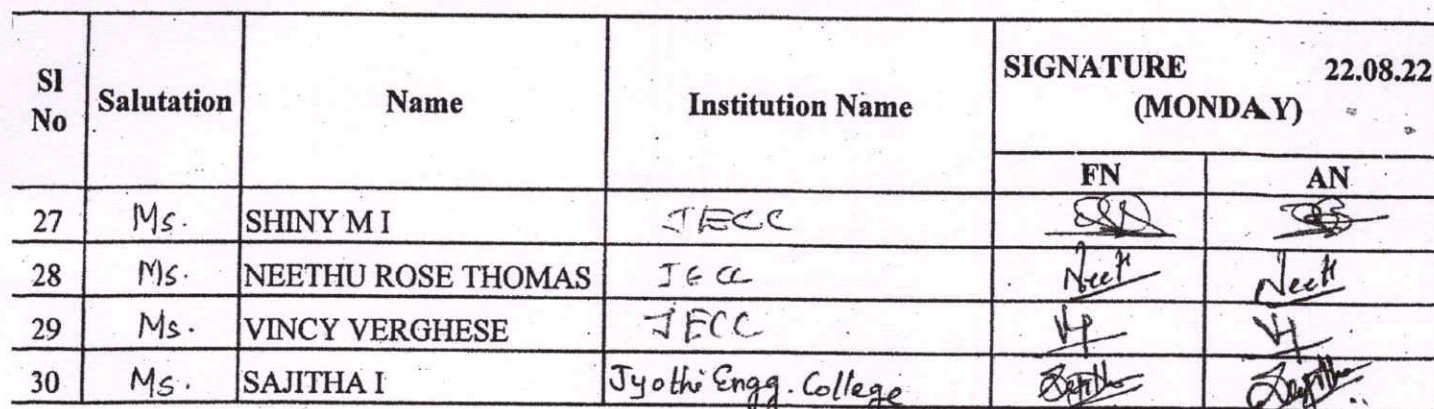 Sl No Salutation Name Institution Name SIGNATURE 22.08.22 (MONDAY)
FN AN
27 Ms. SHINY M I JECC
28 Ms. NEETHU ROSE THOMAS JECC Neeth Neeth
29 Ms. VINCY VERGHESE JECC
30 Ms. SAJITHA I Jyothi Engg. College Sajitha Sajitha